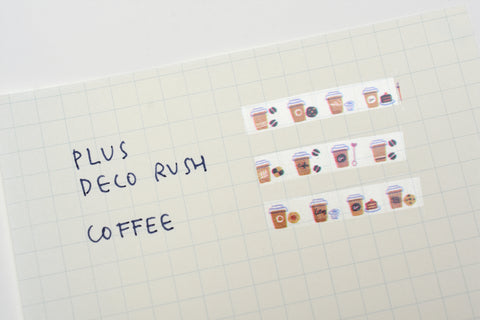 PLUS
DECO RUSH
COFFEE